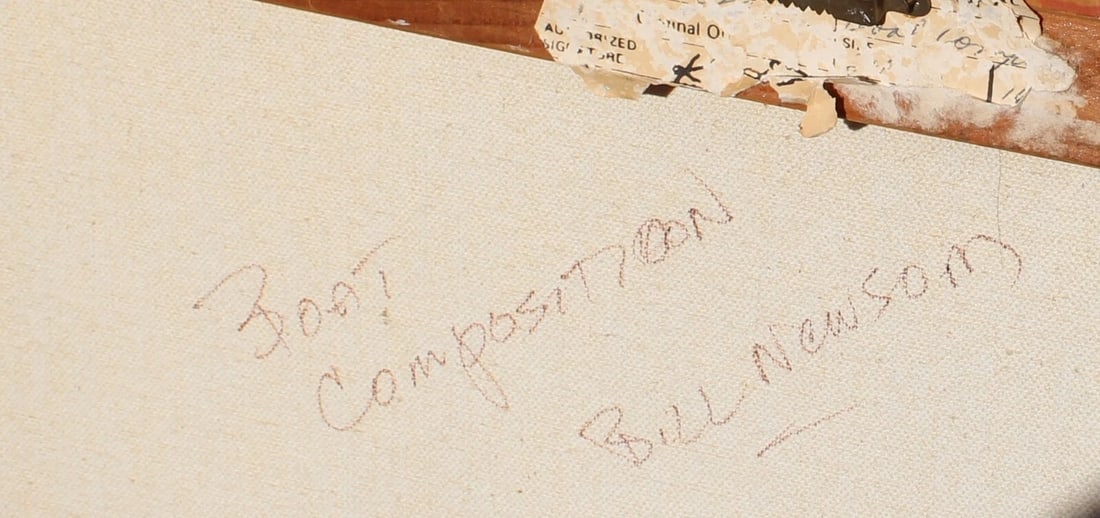 AUTHORIZED
SIGNATURE
Boat
Composition
Bill Newsom